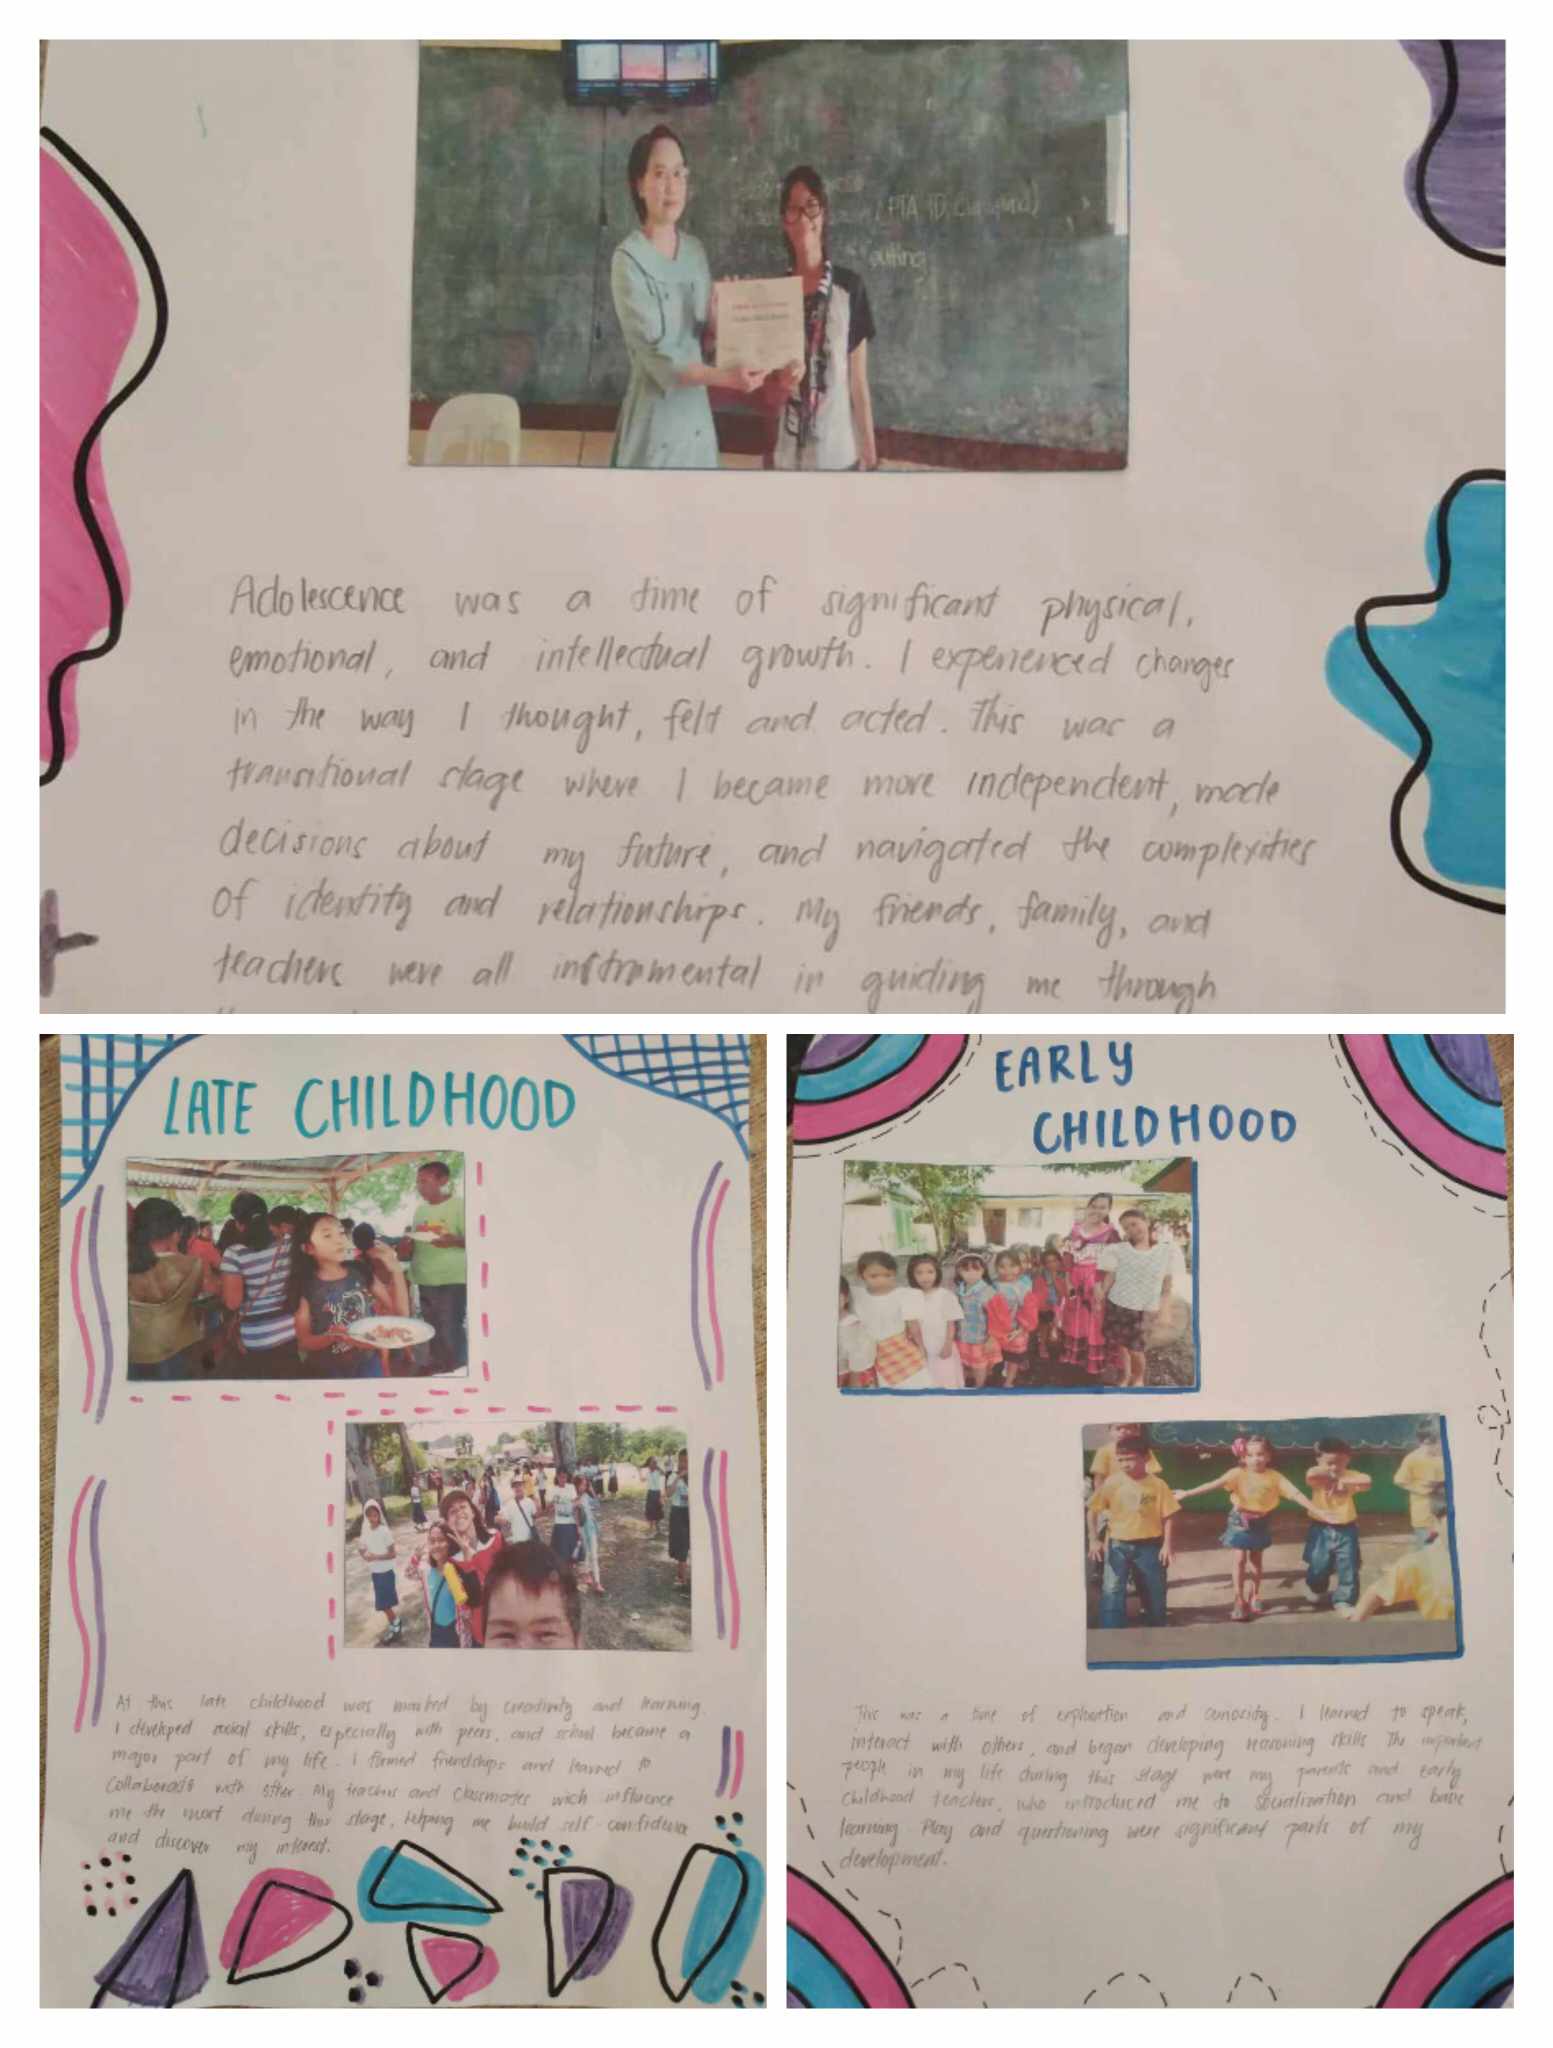 (PTA, ID,
outing
Adolescence was a time of significant physical,
emotional, and intellectual growth. I experienced changes
in the way I thought, felt and acted. This was a
transitional stage where I became more independent, made
decisions about my future, and navigated the complexities
of identity and relationships. My friends, family, and
teachers were all instrumental in guiding me through
LATE CHILDHOOD
At this late childhood was marked by creativity and learning.
I developed social skills, especially with peers, and school became a
major part of my life. I formed friendships and learned to
Collaborate with other. My teachers and classmates wich influence
me the most during this stage, helping me build self-confidence
and discover my interest.
EARLY
CHILDHOOD
This was a time of exploration and curiosity. I learned to speak,
interact with others, and began developing reasoning skills The important
people in my life during this stage were my parents and early
childhood teachers, who introduced me to socialization and basic
learning. Play and questioning were significant parts of my
development.